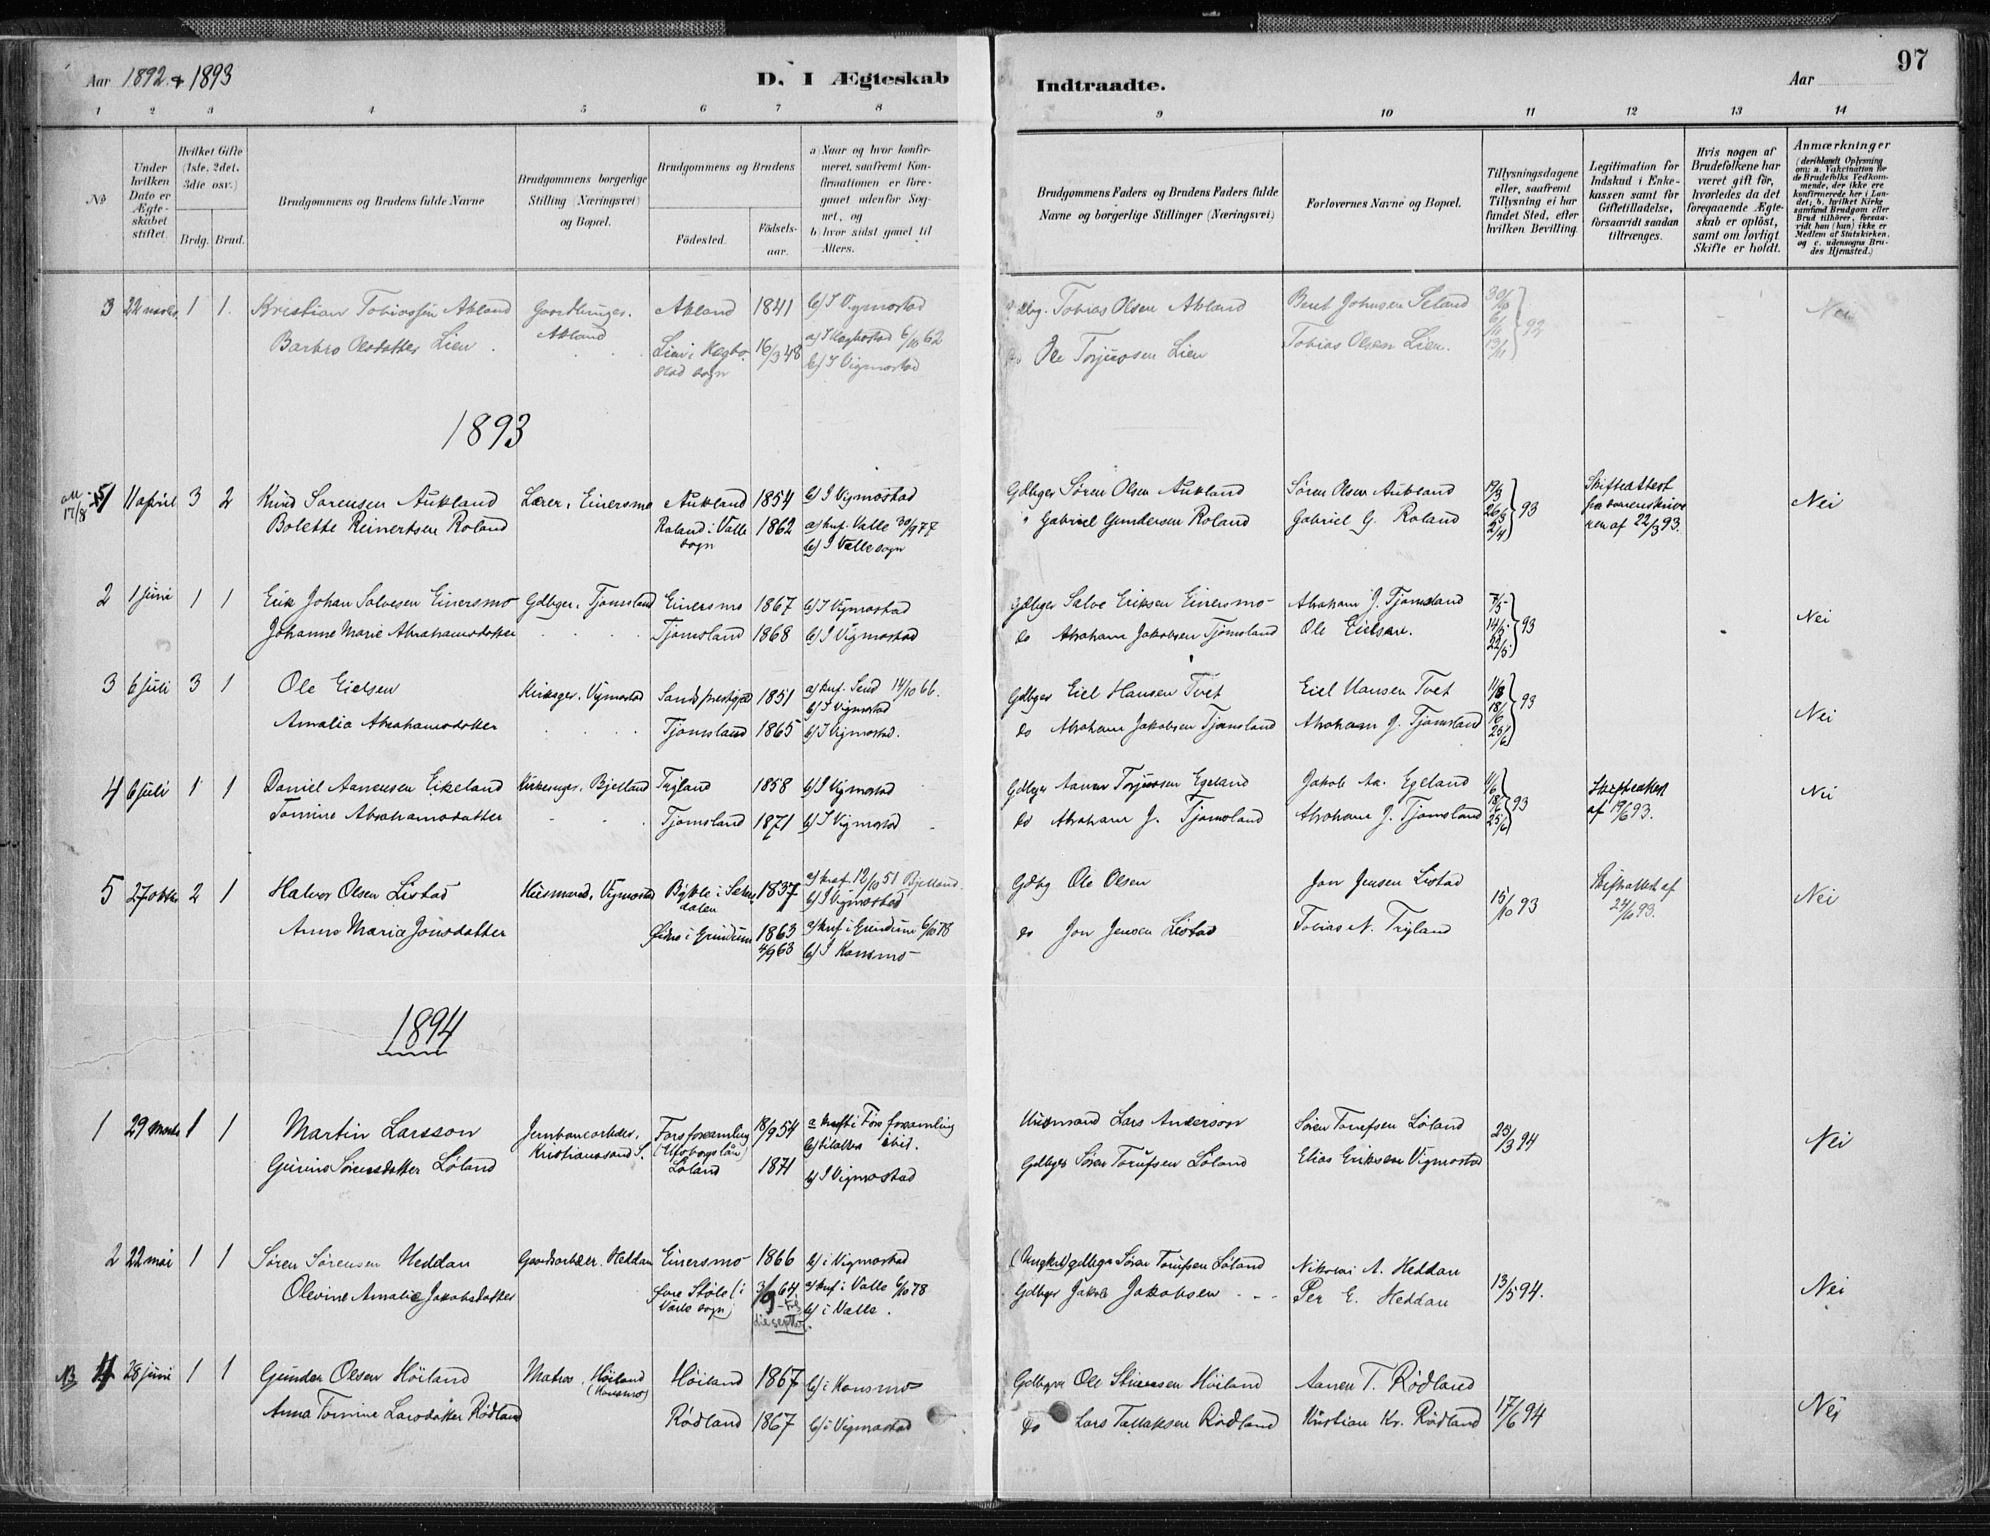 97
Aar 1892 & 1893
D. I Ægteskab Indtraadte.
Aar
1 2 3 4 5 6 7 8 9 10 11 12 13 14
No
Under hvilken Dato er Ægteskabet stiftet.
Hvilket Gifte (1ste, 2det, 3die osv.)
Brdg. Brud.
Brudgommens og Brudens fulde Navne
Brudgommens borgerlige Stilling (Næringsvei) og Bopæl.
Brudgommens og Brudens
Fødested. Fødselsaar.
a) Naar og hvor konfirmeret, saafremt Konfirmationen er foregaaet udenfor Sognet, og
b) hvor sidst gaaet til Alters.
Brudgommens Faders og Brudens Faders fulde Navne og borgerlige Stillinger (Næringsvei)
Forlovernes Navne og Bopæl.
Tillysningsdagene eller, saafremt Tillysning ei har fundet Sted, efter hvilken Bevilling.
Legitimation for Indskud i Enkekassen samt for Giftetilladelse, forsaavidt saadan tiltrænges.
Hvis nogen af Brudefolkene har været gift før, hvorledes da det foregaaende Ægteskab er opløst, samt om lovligt Skifte er holdt.
Anmærkninger
(deriblandt Oplysning om: a. Vakcination for de Brudefolks Vedkommende, der ikke ere konfirmerede her i Landet; b. hvilket Kirkesamfund Brudgom eller Brud tilhører, forsaavidt han (hun) ikke er Medlem af Statskirken, og c. udensogns Brudes Hjemsted.)
3 22 novbr 1 1 Kristian Tobiassen Akland Gaardbruger. Akland Akland 1841 b) I Vigmostad Tobias Olsen Akland Bent Johnsen Seland 30/10 6/11 13/11 } 92 Nei
Barbro Olsdatter Lien Lien i Hægbostad sogn 16/3 48 a) I Hægbostad 6/10 62 b) I Vigmostad do Ole Torjussen Lien Tobias Olsen Lien.
1893
1 11 april 3 2 Knud Sørensen Aukland Lærer, Einersmo Aukland 1854 b) I Vigmostad Gdbger Søren Olsen Aukland Søren Olsen Aukland 19/3 26/3 2/4 } 93 Skifteattest fra sorenskriveren af 22/3 93. Nei
Bolette Reinertsen Roland Roland i Valle sogn 1862 a) knf. Valle 30/9 77 b) I Valle sogn " Gabriel Gundersen Roland Gabriel G. Roland
2 1 juni 1 1 Erik Johan Salvesen Einersmo Gdbger, Tjomsland Einersmo 1867 b) I Vigmostad Gdbger Salve Eriksen Einersmo Abraham J. Tjomsland 7/5 14/5 22/5 } 93 Nei
Johanne Marie Abrahamsdatter Tjomsland 1868 b) I Vigmostad do Abraham Jakobsen Tjomsland Ole Eielsen.
3 6 juli 3 1 Ole Eielsen Kirksger. Vigmostad 1851 14/10 66. b) I Vigmostad Gdbger Eiel Hansen Tvet Eiel Hansen Tvet 11/6 18/6 25/6 } 93 Nei
Amalia Abrahamsdatter Tjomsland 1865 b) I Vigmostad. do Abraham Jakobsen Tjomsland Abraham J. Tjomsland
4 6 juli 1 1 Daniel Aanensen Eikeland Kirkesanger, Bjelland Trygland 1858 b) I Vigmostad Gdbger Aanen Torjussen Egeland Jakob Aa. Egeland 11/6 18/6 25/6 } 93 Skifteattest af 19/6 93. Nei
Tomine Abrahamsdatter Tjomsland 1871 b) I Vigmostad do Abraham J. Tjomsland Abraham J. Tjomsland
5 27 oktbr 2 1 Halvor Olsen Listad Huusmand, Vigmostad Bykle i Sætersdalen 1837 a) knf. 12/10 51 Bjelland. b) I Vigmostad Gdbg Ole Olsen Jon Jensen Listad 15/10 93 Skifteattest af 24/10 93. Nei
Anne Maria Jonsdatter i Grindum 1863 4/9 63 a) knf i Grindum 6/10 78 b) I Konsmo do Jon Jensen Listad Tobias N. Trygland
1894
1 29 marts 1 1 Martin Larsson Jernbanearbeider, Kristianssand S. Fors forsamling (Elfsborgs län) 18/9 54 a) knf i Fors forsamling b) tilalters ibid. Husmand Lars Andersson Søren Torufsen Løland 25/3 94 Nei
Gurine Sørensdatter Løland Løland 1871 b) I Vigmostad Gdbger Søren Torufsen Løland Elias Eriksen Vigmostad
2 22 mai 1 1 Søren Sørensen Heddan Gaardarbeider. Heddan Einersmo 1866 b) i Vigmostad gdbger Søren Torufsen Løland Nikolai A. Heddan 13/5 94. Nei
Olevine Amalie Jakobsdatter Øvre Støle (i Valle sogn) 3/9 64. a) knf i Valle 6/10 78 b) i Valle. Gdbger Jakob Jakobsen Per E. Heddan
NB 4 28 juni 1 1 Gunder Olsen Høiland Matros. Høiland (Konsmo) Høiland 1867 b) i Konsmo Gdbger Ole Høiland Aanen T. Rødland 17/6 94 Nei
Anna Tomine Larsdatter Rødland Rødland 1867 b) i Vigmostad do Lars Tallaksen Rødland Kristian Kr. Rødland